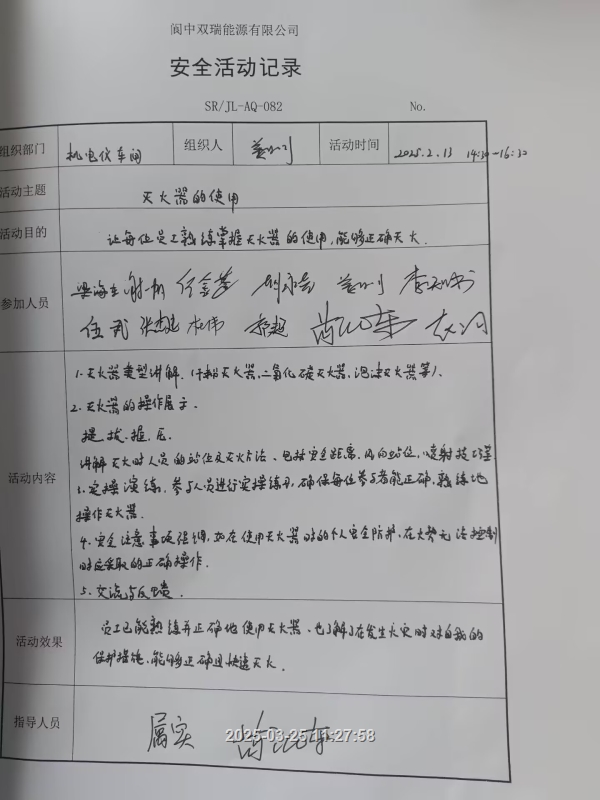 阆中双瑞能源有限公司
安全活动记录
SR/JL-AQ-082 No.
组织部门 机电仪车间 组织人 活动时间 2025.2.13 14:30-16:30
活动主题 灭火器的使用
活动目的 让每位员工熟练掌握灭火器的使用,能够正确灭火.
参加人员
伍武
活动内容
1. 灭火器类型讲解.(干粉灭火器,二氧化碳灭火器,泡沫灭火器等).
2. 灭火器的操作展示.
提.拔.握.压.
讲解灭火时人员的站位及灭火方法、包括安全距离、风向站位,喷射技巧等
3. 实操演练.参与人员进行实操练习,确保每位参与者能正确.熟练地
操作灭火器.
4. 安全注意事项强调,如在使用灭火器时的个人安全防护,在火势无法控制
时应采取的正确操作.
5. 交流与反馈.
活动效果
员工已能熟练并正确地使用灭火器、也了解了在发生火灾时对自我的
保护措施,能够正确且快速灭火.
指导人员 属实
2025-03-25 11:27:58